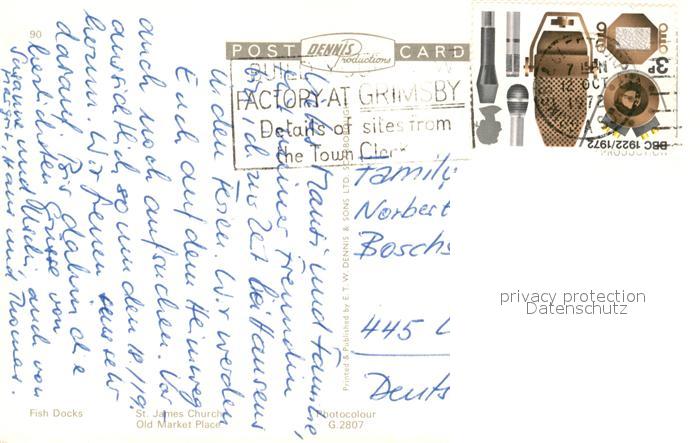 90
POST DENNIS Productions CARD
FACTORY AT GRIMSBY
Details of sites from
the Town Clerk
7
12 OCT
1972
3P
BBC 1922/1972
Liebe und Familie,
meiner Freundin
bin ich zur Zeit bei Hausens
in den Ferien. Wir werden
Euch auf dem Heimweg
auch noch aufsuchen. Vor-
aussichtlich so um den 18./19.
herum. Wir freuen uns sehr
darauf. Bis dahin die
herzlichsten Grüsse von
Susanne und Uschi, auch von
Hans und Thomas.
Family
Norbert
Boschs
445 L
Deuts
Printed & Published by E. T. W. DENNIS & SONS LTD. SCARBOROUGH
privacy protection
Datenschutz
Fish Docks
St. James Church
Old Market Place
Photocolour
G.2807